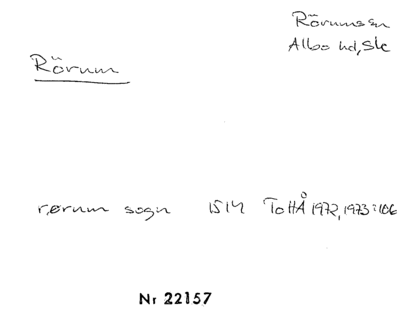 Rörums sn
Albo hd, Sk
Rörum
rørum sogn 1514 ToHÅ 1972, 1973:106
Nr 22157